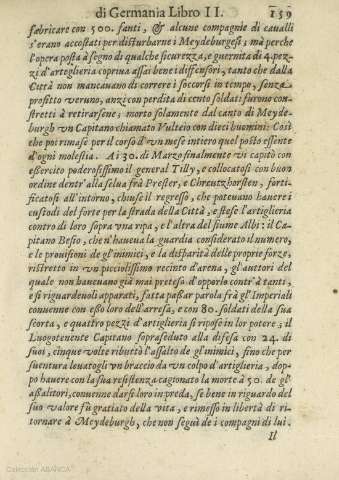 di Germania Libro II. 159
fabricare con 500. fanti, & alcune compagnie di cavalli
s'erano accostati per disturbarne i Meydeburgesi; mà perche
l'opera posta à segno di qualche sicurezza, e guernita di 4. pez-
zi d'arteglieria copriua assai bene i diffensori, tanto che dalla
Città non mancauano di correre i soccorsi in tempo, senza
profitto veruno, anzi con perdita di cento soldati furono con-
stretti à retirarsene; morto solamente dal canto di Meyde-
burgh vn Capitano chiamato Vulteio con dieci huomini: Così
che poi rimase per il corso d'vn mese intiero quel posto essente
d'ogni molestia. Ai 30. di Marzo finalmente vi capitò con
essercito poderosissimo il general Tilly, e collocatosi con buon
ordine dentr'alla selua frà Prester, e Chreutzhorsten, forti-
ficatosi all'intorno, chiuse il regresso, che poteuano hauere i
custodi del forte per la strada della Città, e stese l'artiglieria
contro di loro sopra vna ripa, e l'altra del fiume Albi: il Ca-
pitano Besio, che n'haueua la guardia considerato il numero,
e le prouisioni de gl'inimici, e la disparità delle proprie forze,
ristretto in vn picciolissimo recinto d'arena, gl'auttori del
quale non haueuano già mai pretesa d'opporlo contr'à tanti,
e sì riguardeuoli apparati, fatta passar parola frà gl'Imperiali
conuenne con esso loro dell'arresa, e con 80. soldati della sua
scorta, e quattro pezzi d'artiglieria si ripose in lor potere; il
Luogotenente Capitano sopraseduto alla difesa con 24. di
suoi, cinque volte ributtò l'assalto de gl'inimici, fino che per
suentura leuatogli vn braccio da vn colpo d'artiglieria, dop-
po hauere con la sua resistenza cagionato la morte à 50. de gl'
assalitori, conuenne darse loro in preda, se bene in riguardo del
suo valore fù gratiato della vita, e rimesso in libertà di ri-
tornare à Meydeburgh, che non seguì de i compagni di lui.
Il
Colección ABANCA